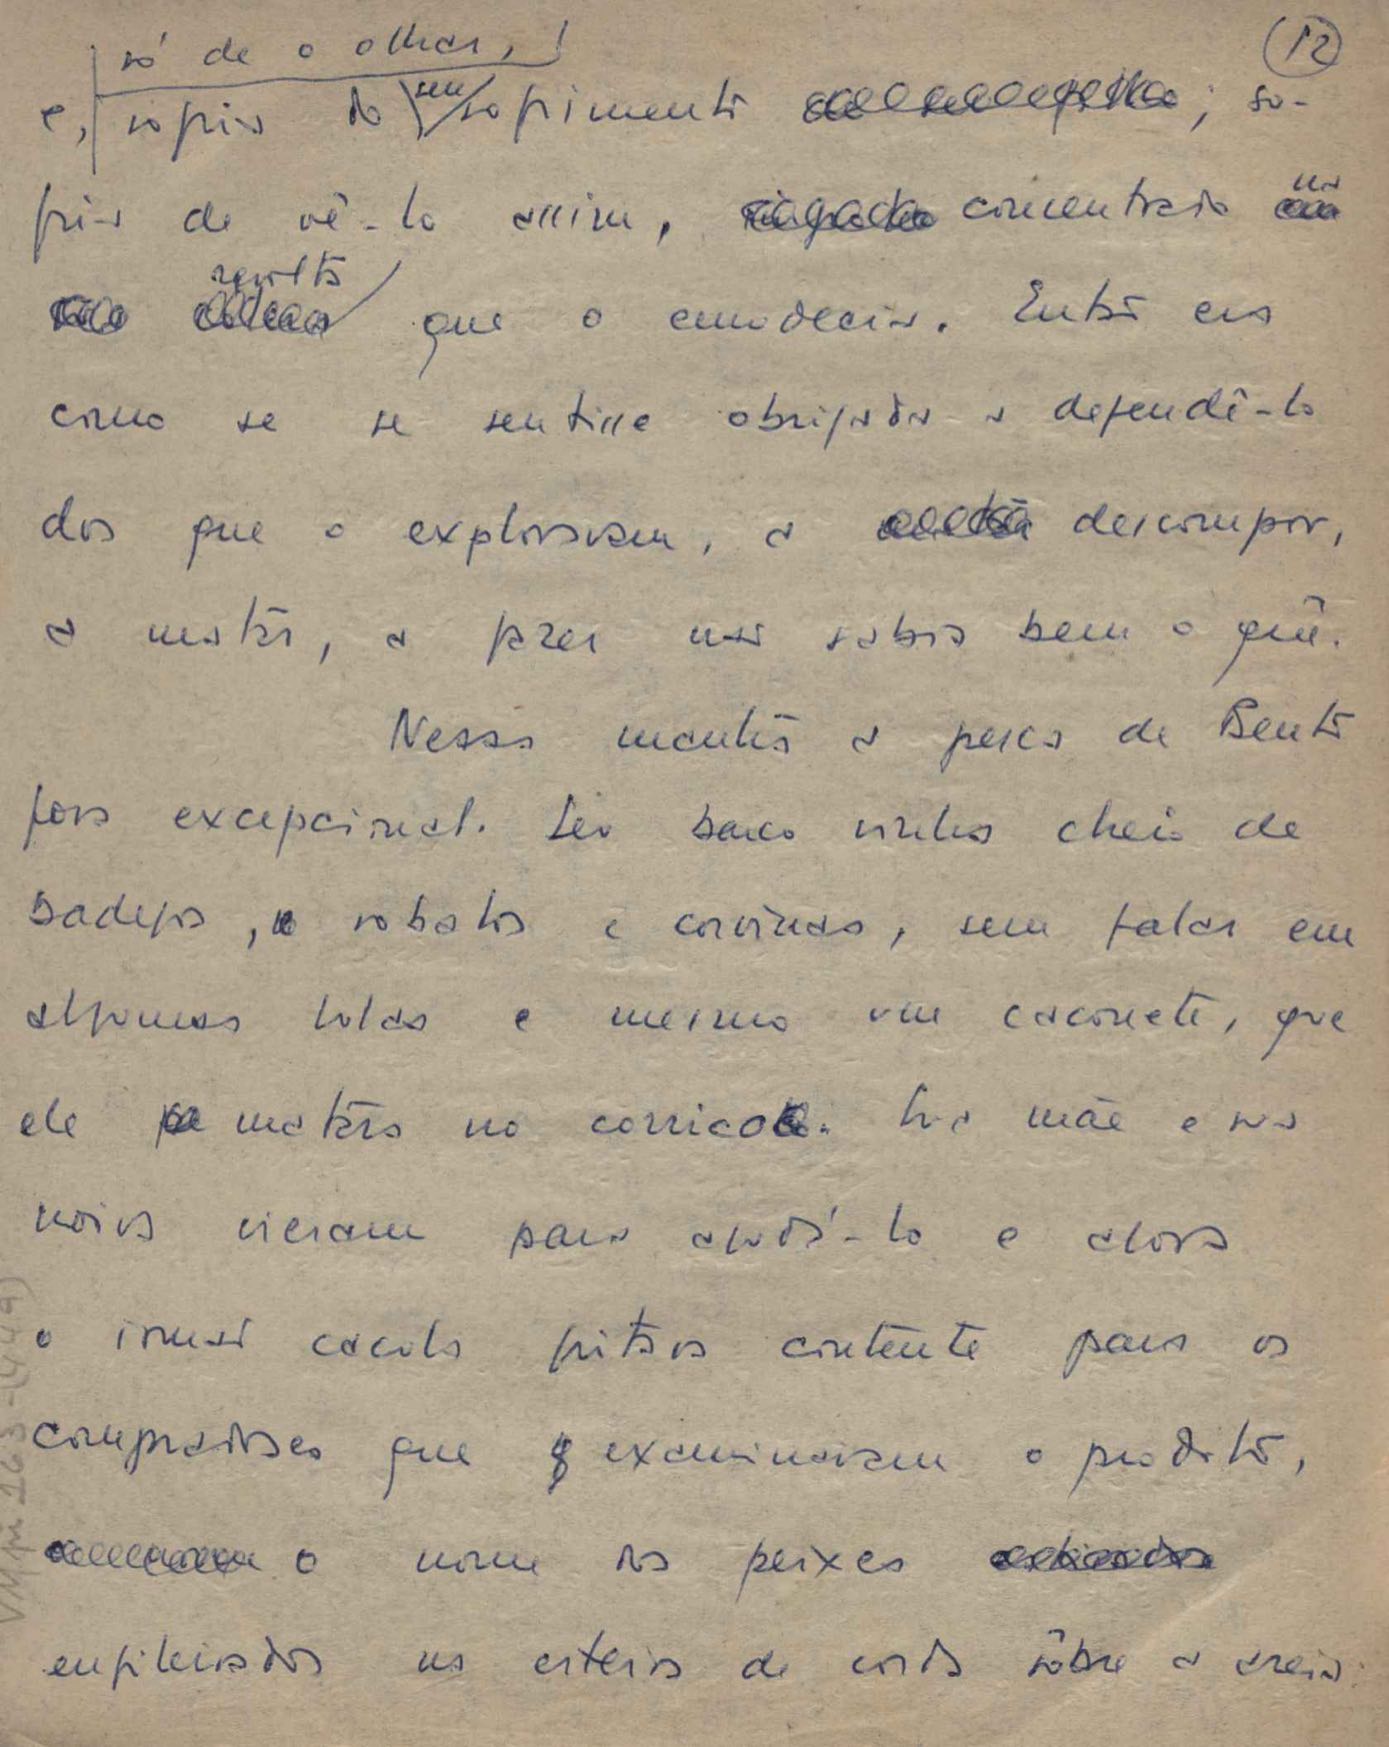 (12)
só de o olhar,
e, sofria do seu sofrimento ; so-
fria de vê-lo assim, concentrado na
revolta
que o emudecia. Então era
como se se sentisse obrigada a defendê-lo
dos que o exploravam, a descompor,
a matar, a fazer não sabia bem o quê.
Nessa manhã a pesca de Bento
fora excepcional. Seu barco vinha cheio de
badejos, robalos e corvinas, sem falar em
algumas lulas e mesmo um caçonete, que
ele matara no corrico. Sua mãe e sua
noiva vieram para ajudá-lo e agora
o irmão caçula gritava contente para os
compradores que examinavam o produto,
o nome dos peixes
enfileirados na esteira de corda sôbre a areia.
VMpi 163-(449)